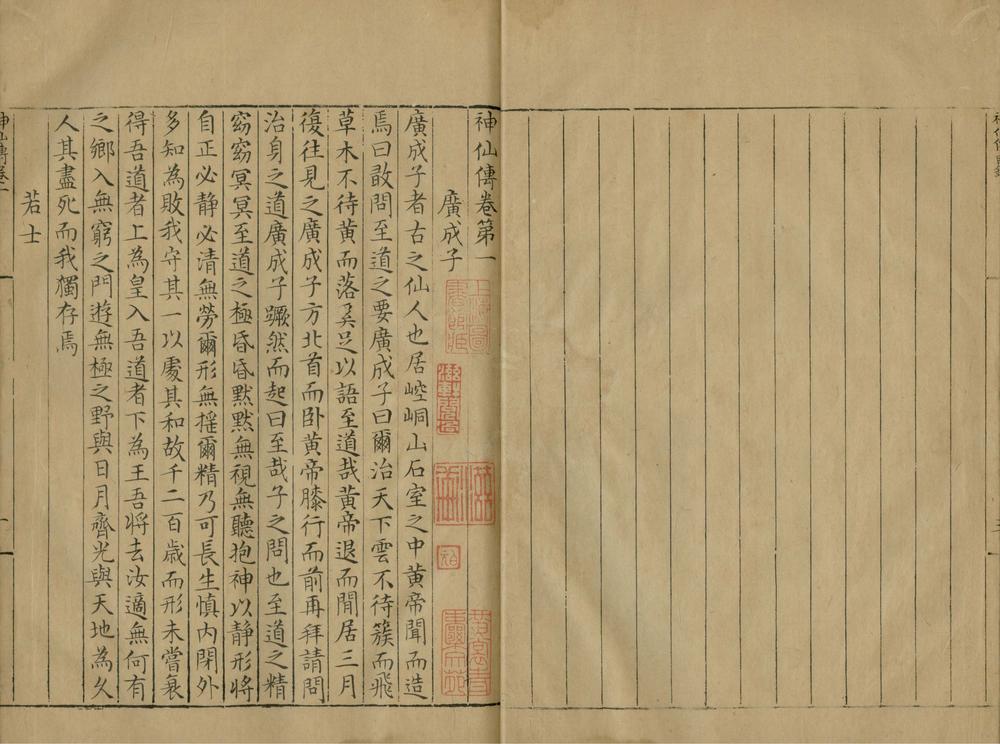 神仙傳卷第一
廣成子
廣成子者古之仙人也居崆峒山石室之中黄帝聞而造
焉曰敢問至道之要廣成子曰爾治天下雲不待簇而飛
草木不待黄而落奚足以語至道哉黄帝退而閒居三月
復往見之廣成子方北首而卧黄帝膝行而前再拜請問
治身之道廣成子蹶然而起曰至哉子之問也至道之精
窈窈冥冥至道之極昏昏默默無視無聽抱神以静形將
自正必静必清無勞爾形無揺爾精乃可長生慎内閉外
多知為敗我守其一以處其和故千二百歳而形未嘗衰
得吾道者上為皇入吾道者下為王吾將去汝適無何有
之鄉入無窮之門遊無極之野與日月齊光與天地為久
人其盡死而我獨存焉
若士
神仙傳卷一